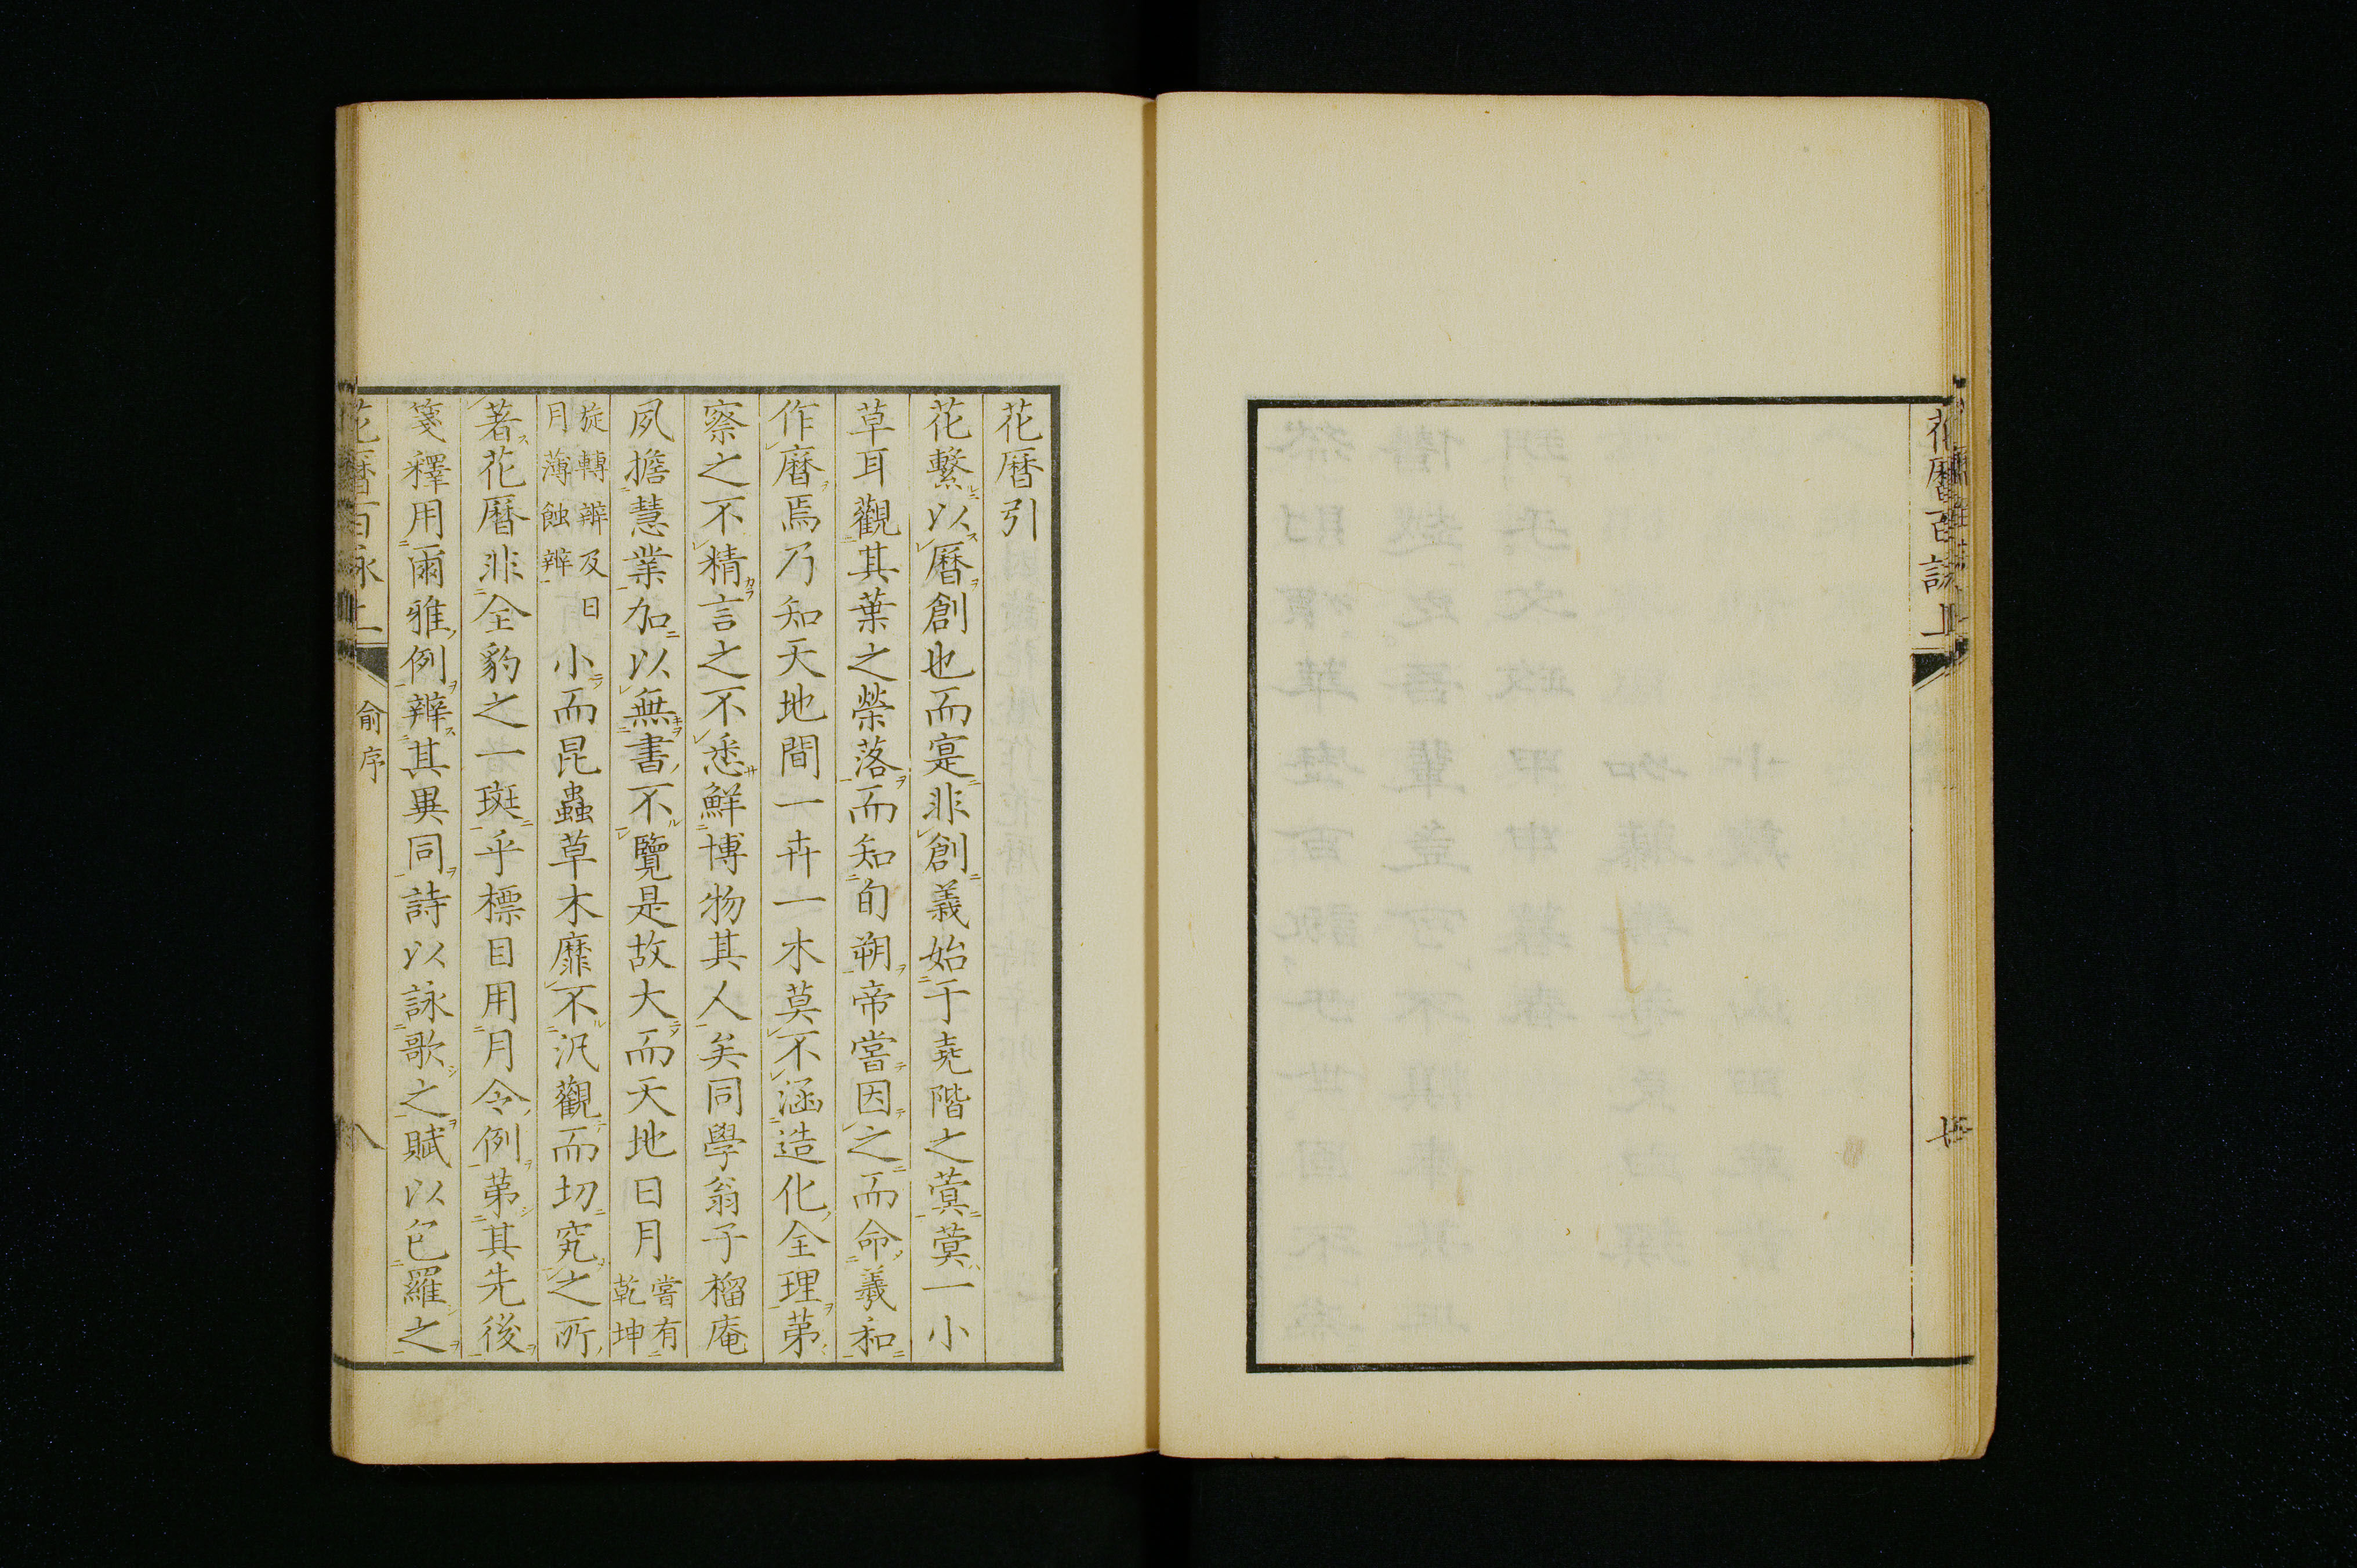 花曆百詠上
花曆引
花繫以曆創也而寔非創義始于堯階之蓂蓂一小
草耳觀其葉之榮落而知旬朔帝嘗因之而命羲和
作曆焉乃知天地間一卉一木莫不涵造化全理第
察之不精言之不悉鮮博物其人矣同學翁子榴庵
夙擔慧業加以無書不覽是故大而天地日月嘗有乾坤
旋轉辨及日月薄蝕辨小而昆蟲草木靡不汎觀而切究之所
著花曆非全豹之一斑乎標目用月令例第其先後
箋釋用爾雅例辨其異同詩以詠歌之賦以包羅之
花曆百詠上
俞序
八